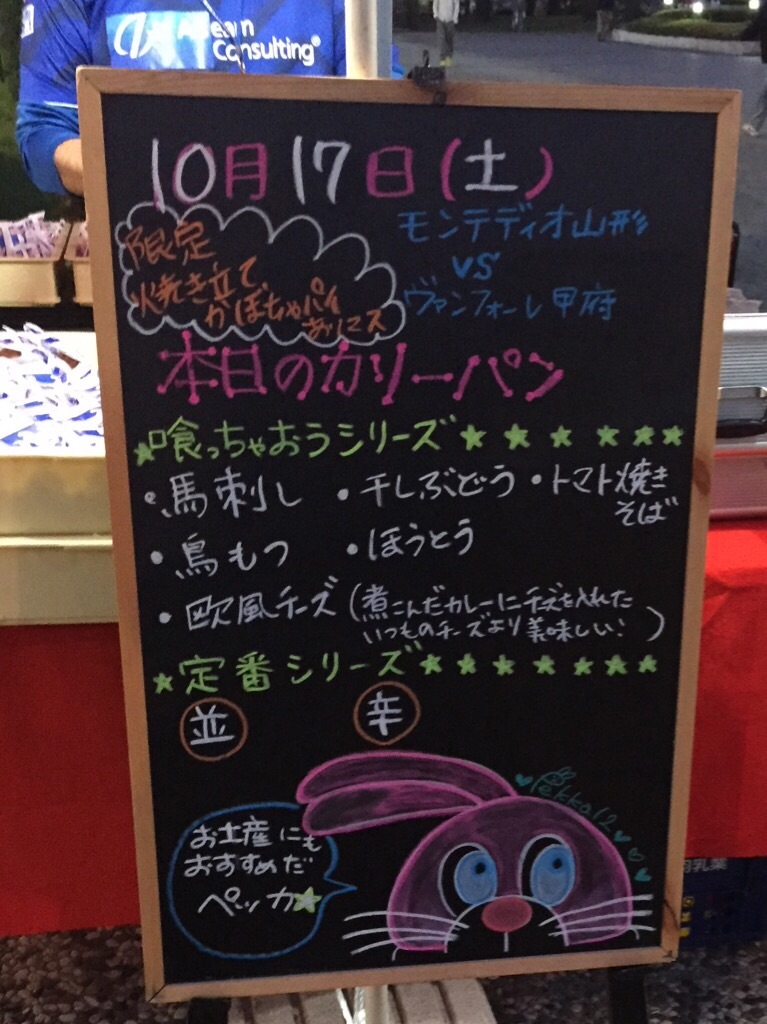 Consulting®
10月17日(土)
限定
焼き立て
かぼちゃパイ
あにス
モンテディオ山形
vs
ヴァンフォーレ甲府
本日のカリーパン
★喰っちゃおうシリーズ★★★★★★
・馬刺し ・干しぶどう ・トマト焼き
そば
・鳥もつ ・ほうとう
・欧風チーズ(煮こんだカレーにチーズを入れた
いつものチーズより美味しい!)
★定番シリーズ★★★★★★★
並 辛
Pekka12
お土産にも
おすすめだ
ペッカ★